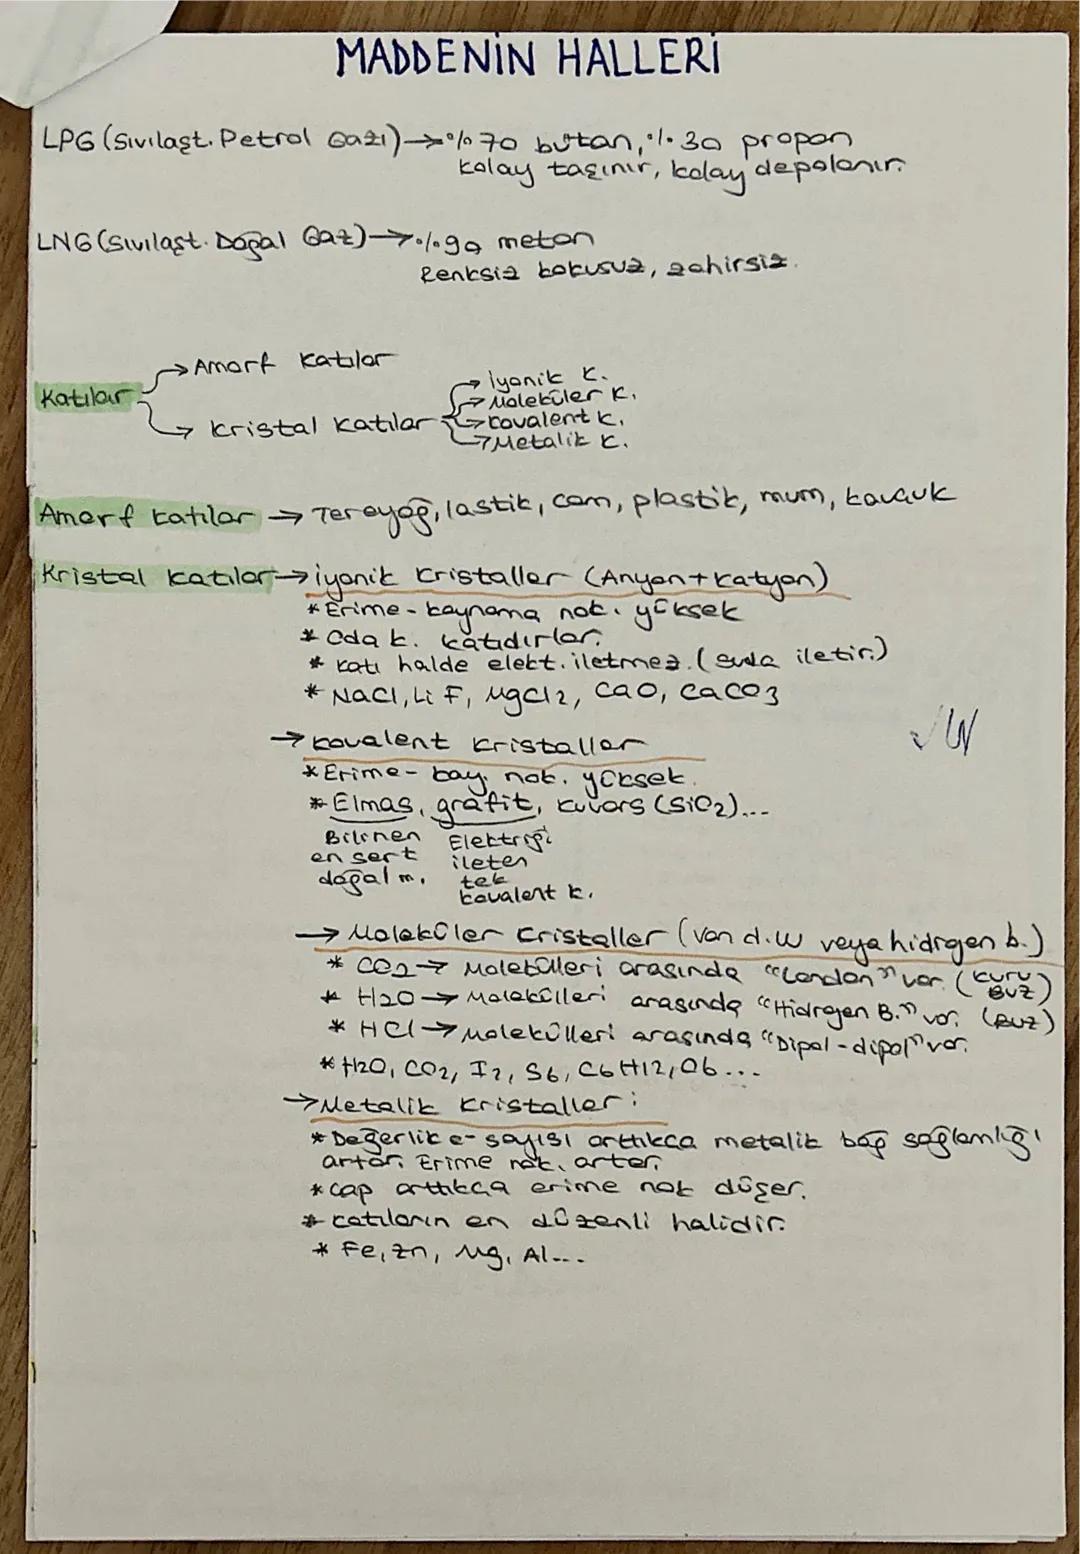 MADDENİN HALLERİ
LPG (Sıvılaşt. Petrol Gazı) → %70 bütan, %30 propan
kolay taşınır, kolay depolanır.
LNG (Sıvılaşt. Doğal Gaz) → %90 metan
Renksiz kokusuz, zehirsiz.
Katılar
→ Amorf Katılar
→ Kristal Katılar
→ İyonik K.
→ Moleküler K.
→ Kovalent K.
→ Metalik K.
Amorf Katılar → Tereyağ, lastik, cam, plastik, mum, kauçuk
Kristal Katılar → iyonik kristaller (Anyon+Katyon)
* Erime-kaynama nok. yüksek
* Oda k. katıdırlar.
* Katı halde elekt. iletmez. (suda iletir.)
* NaCl, LiF, MgCl2, CaO, CaCO3
→ Kovalent Kristaller
* Erime-kay. nok. yüksek.
* Elmas, grafit, kuvars (SiO2)...
Bilinen en sert doğal m.
Elektriği ileten tek kovalent k.
→ Moleküler Kristaller (Van d.W veya hidrojen b.)
* CO2 → Molekülleri arasında "London" var. (kuru BUZ)
* H2O → Molekülleri arasında "Hidrojen B." var. (BUZ)
* HCl → Molekülleri arasında "Dipol-dipol" var.
* H2O, CO2, I2, S6, C6H12,O6...
→ Metalik Kristaller:
* Değerlik e- sayısı arttıkça metalik bağ sağlamlığı
artar. Erime nok. artar.
* Çap arttıkça erime nok düşer.
* Katıların en düzenli halidir.
* Fe, Zn, Mg, Al...